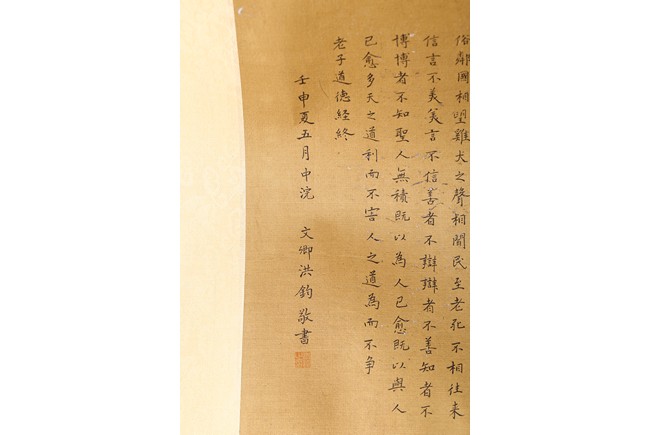 俗鄰國相望雞犬之聲相聞民至老死不相往来
信言不美美言不信善者不辯辯者不善知者不
博博者不知聖人無積既以為人已愈既以與人
已愈多天之道利而不害人之道為而不争
老子道德経終
壬申夏五月中浣 文卿洪鈞敬書